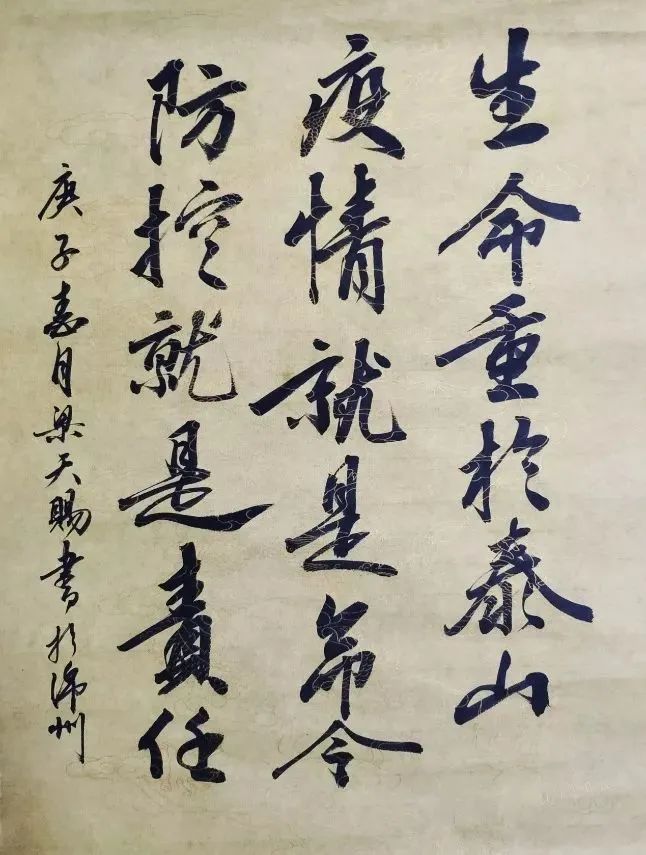 生命重於泰山
疫情就是命令
防控就是責任
庚子嘉月梁天賜書於州